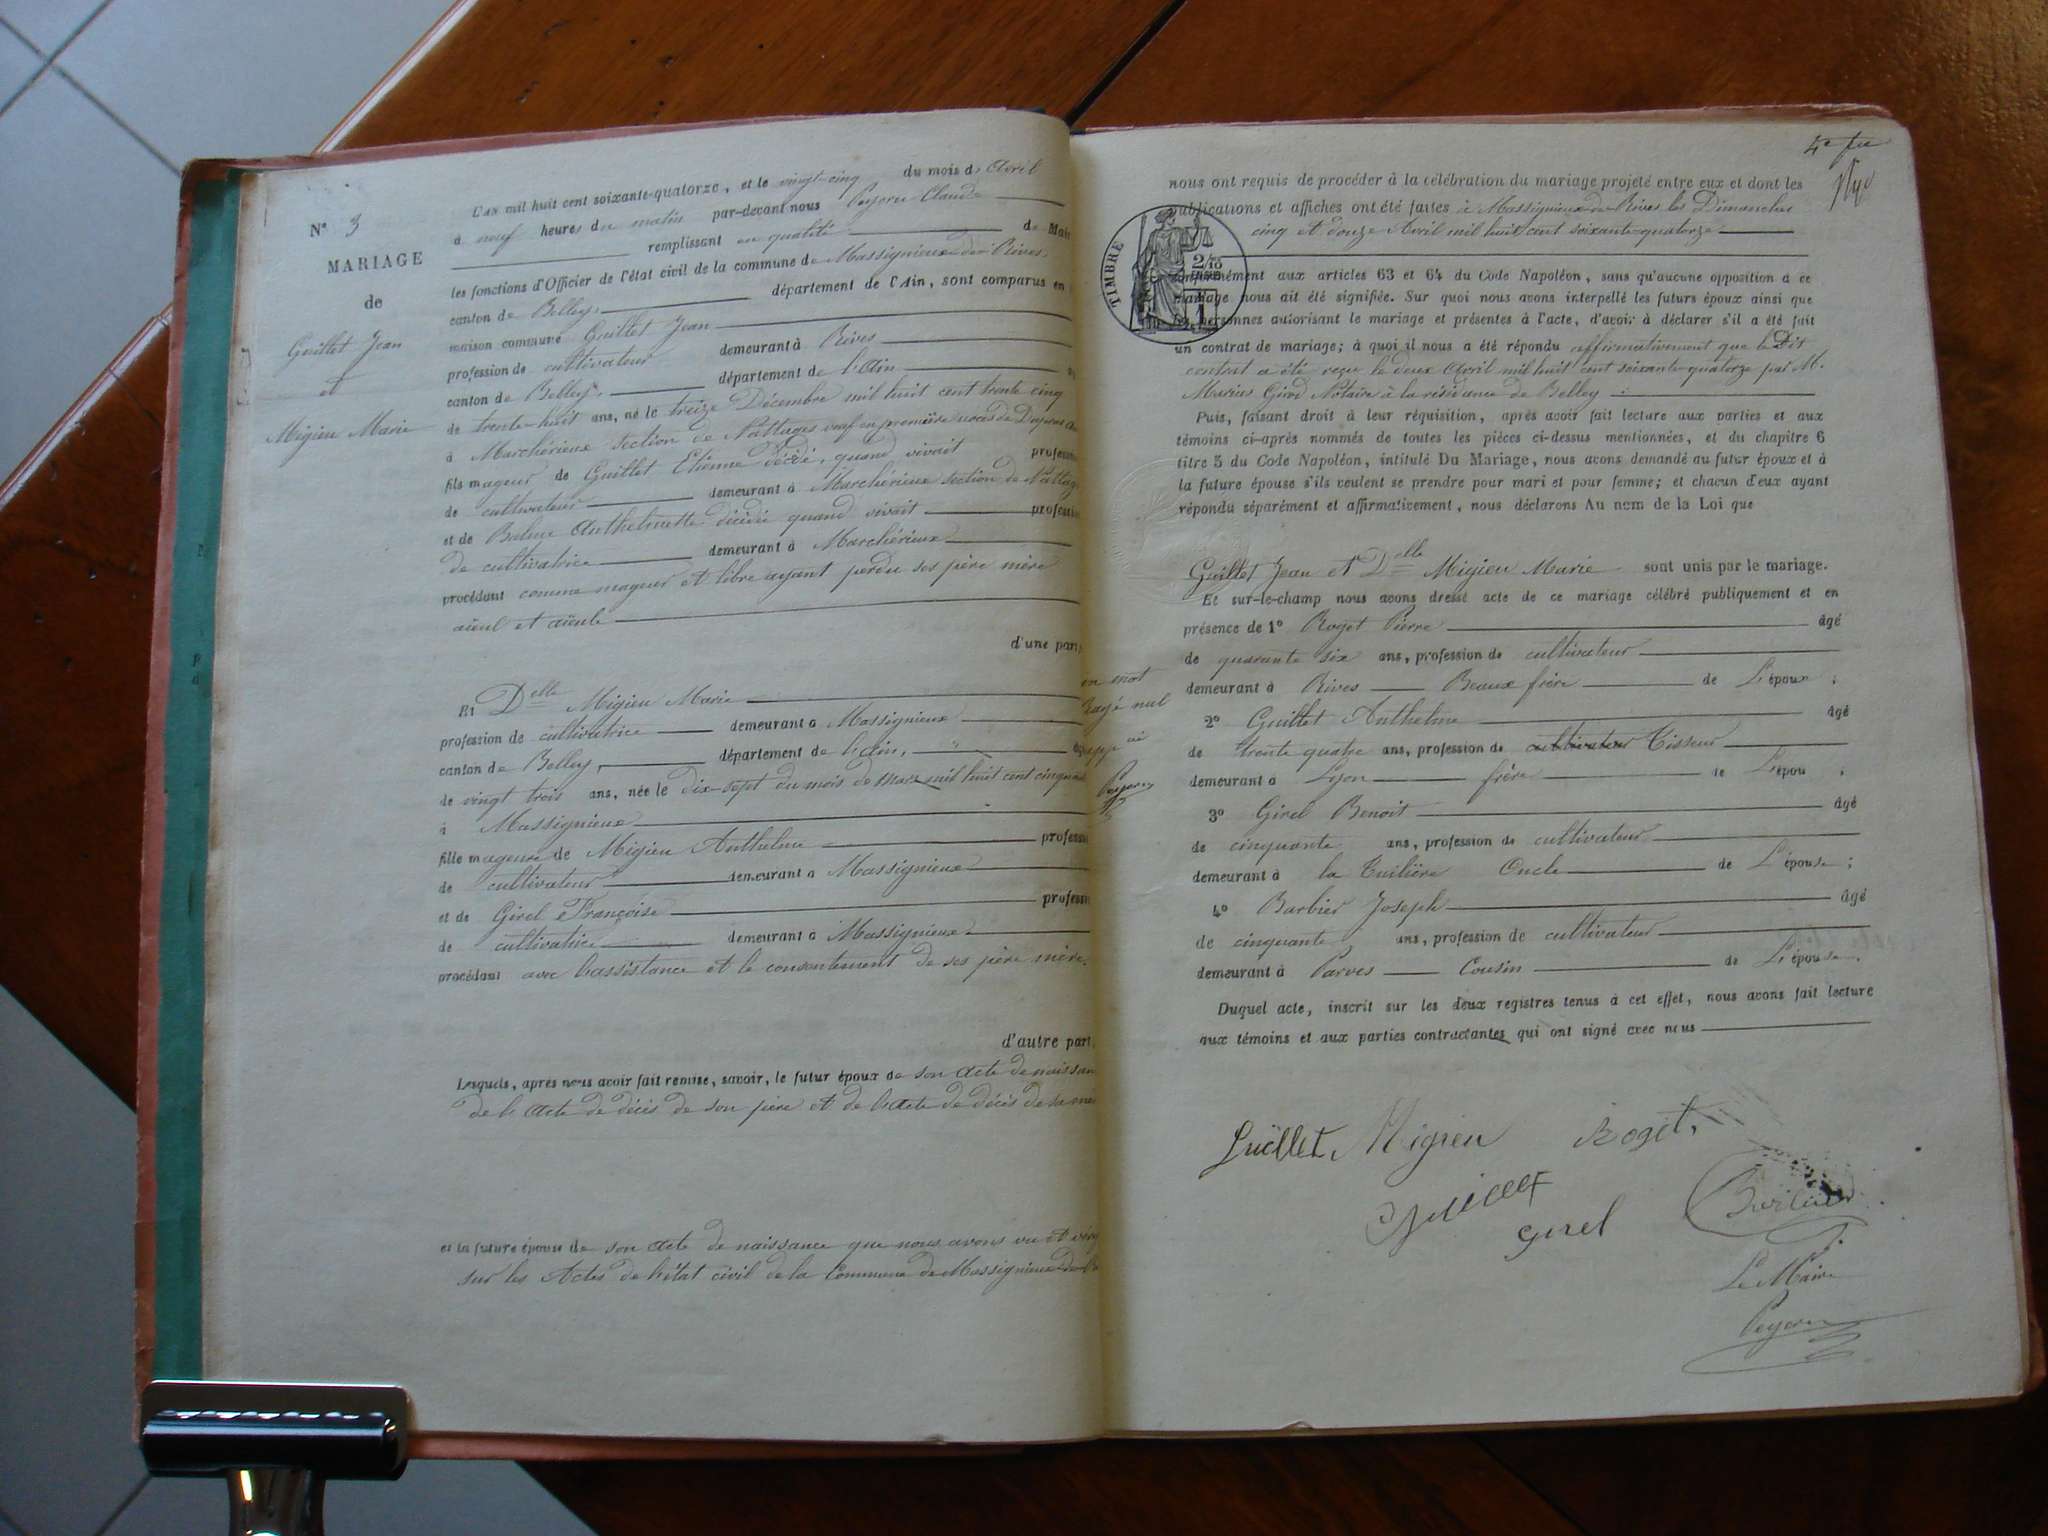 N° 3
MARIAGE
de
Guillet Jean
et
Migieu Marie
L'an mil huit cent soixante-quatorze, et le vingt-cinq du mois d'Avril
à neuf heures du matin par-devant nous Peysson Claude
remplissant en qualité de Maire
les fonctions d'Officier de l'état civil de la commune de Massignieux de Rives
canton de Belley, département de l'Ain, sont comparus en
maison commune Guillet Jean
profession de cultivateur demeurant à Rives
canton de Belley, département de l'Ain
de trente-huit ans, né le treize Décembre mil huit cent trente cinq
à Marchérieux section de Nattages veuf en première noces de
fils majeur de Guillet Etienne décédé, quand vivait profession
de cultivateur demeurant à Marchérieux section de Nattage
et de Balme Anthelmette décédée quand vivait profession
de cultivatrice demeurant à Marchérieux
procédant comme mageur et libre ayant perdu ses père mère
aïeul et aïeule
d'une part
Et Delle Migieu Marie
profession de cultivatrice demeurant à Massignieux
canton de Belley, département de l'Ain,
de vingt trois ans, née le dix-sept du mois de Mars mil huit cent cinquante
à Massignieux
fille mageure de Migieu Anthelme profession
de cultivateur demeurant à Massignieux
et de Girel Françoise profession
de cultivatrice demeurant à Massignieux
procédant avec l'assistance et le consentement de ses père mère.
d'autre part,
Lesquels, après nous avoir fait remise, savoir, le futur époux de son acte de naissan
de l'acte de décès de son père et de l'acte de décès de sa mè
et la future épouse de son acte de naissance que nous avons vu et
sur les Actes de l'état civil de la Commune de Massignieux de
un mot
rayé nul
4e
nous ont requis de procéder à la célébration du mariage projeté entre eux et dont les
publications et affiches ont été faites à Massignieux de Rives les Dimanches
cinq et douze Avril mil huit cent soixante-quatorze
TIMBRE
2/10
conformément aux articles 63 et 64 du Code Napoléon, sans qu'aucune opposition à ce
mariage nous ait été signifiée. Sur quoi nous avons interpellé les futurs époux ainsi que
les personnes autorisant le mariage et présentes à l'acte, d'avoir à déclarer s'il a été fait
un contrat de mariage; à quoi il nous a été répondu affirmativement que le Dit
contrat a été reçu le deux Avril mil huit cent soixante quatorze par M.
Marius Girod Notaire à la résidance de Belley
Puis, faisant droit à leur réquisition, après avoir fait lecture aux parties et aux
témoins ci-après nommés de toutes les pièces ci-dessus mentionnées, et du chapitre 6
titre 5 du Code Napoléon, intitulé Du Mariage, nous avons demandé au futur époux et à
la future épouse s'ils veulent se prendre pour mari et pour femme; et chacun d'eux ayant
répondu séparément et affirmativement, nous déclarons Au nom de la Loi que
Guillet Jean et Delle Migieu Marie sont unis par le mariage.
Et sur-le-champ nous avons dressé acte de ce mariage célébré publiquement et en
présence de 1° Roget Pierre âgé
de quarante six ans, profession de cultivateur
demeurant à Rives Beaux frère de L'époux ;
2° Guillet Anthelme âgé
de trente quatre ans, profession de cultivateur Tisseur
demeurant à Lyon frère de L'épou ;
3° Girel Benoit âgé
de cinquante ans, profession de cultivateur
demeurant à la Tuilière Oncle de L'épouse ;
4° Barbier Joseph âgé
de cinquante ans, profession de cultivateur
demeurant à Parves Cousin de L'épouse.
Duquel acte, inscrit sur les deux registres tenus à cet effet, nous avons fait lecture
aux témoins et aux parties contractantes qui ont signé avec nous
Guillet Migieu Roget
Guillet
Girel
Le Maire